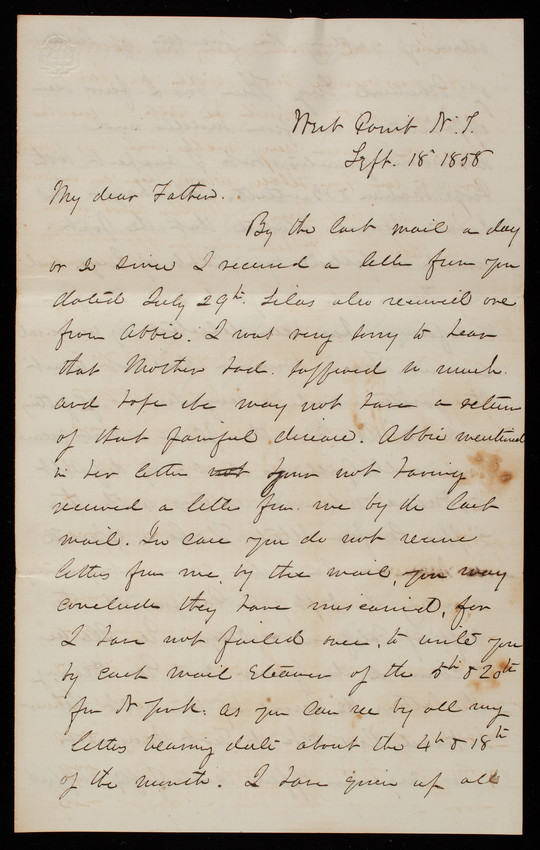 West Point N.Y.
Sept. 18 1858
My dear Father.
By the last mail a day
or 2 since I received a letter from you
dated July 29th. Silas also received one
from Abbie. I was very sorry to hear
that Mother had suffered so much
and hope she may not have a return
of that painful disease. Abbie mentioned
in her letter not your not having
received a letter from me by the last
mail. In case you do not receive
letters from me, by the mail, you may
conclude they have miscarried, for
I have not failed once, to write you
by each mail Steamer of the 5th & 20th
from N York. as you can see by all my
letters bearing date about the 4th & 18th
of the month. I have given up all